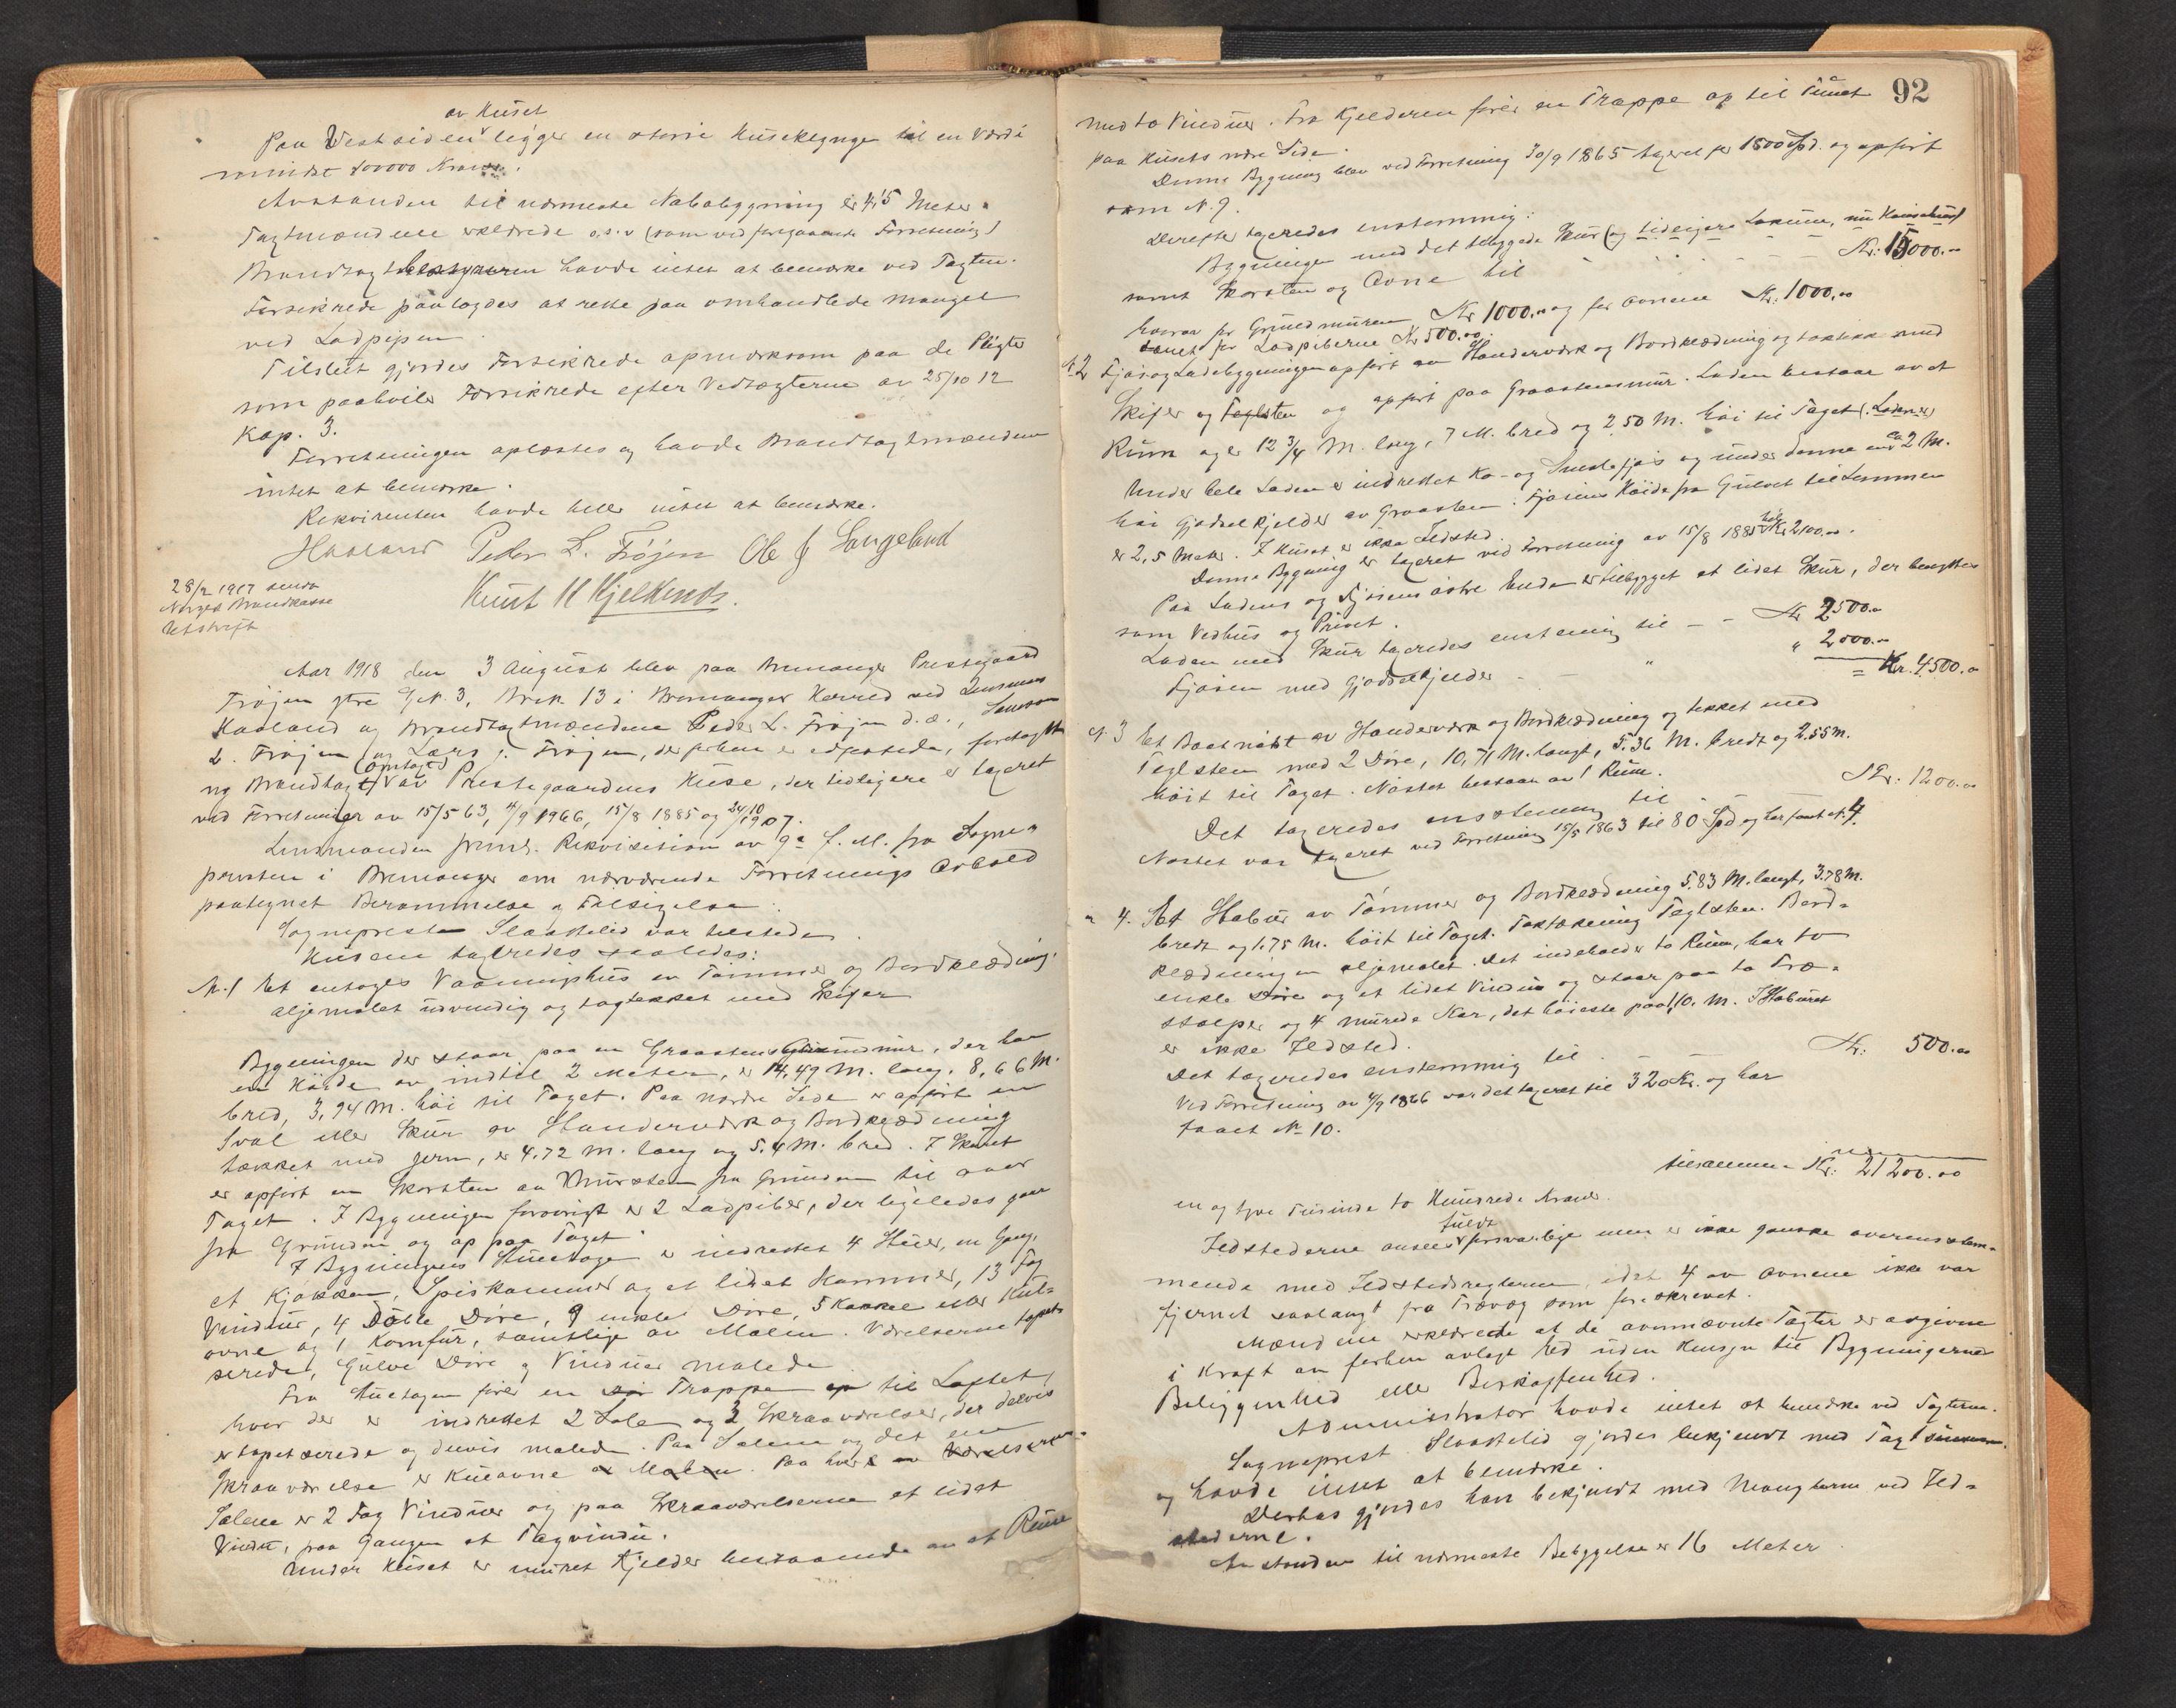 av Huset
Paa Vestsiden ligger en større Huseklynge til en Værdi
mindst 100000 Kroner.
Avstanden til nærmeste Nabobygning er 4,5 Meter.
Taxtmændene erklærede o.s.v (som ved foregaaende Forretning)
Brandtaxtbestyreren havde intet at bemærke ved Taxten.
Forsikrede paalagdes at rette paa omhandlede Mangel
ved Ladpipen.
Tilslut gjordes Forsikrede opmærksom paa de Pligter
som paahviler Forsikrede efter Vedtægterne av 25/10 12
Kap. 3.
Forretningen oplæstes og havde Brandtaxtmændene
intet at bemærke.
Rekvirenten havde heller intet at bemærke.
Haaland Peder L. Frøjen Ole J Langeland
Knut H Kjelkenes.
28/2 1917 sendt
Norges Brandkasse
Utskrift
Aar 1918 den 3 August blev paa Bremanger Prestegaard
Frøjen ytre G.N. 3, Brn. 13 i Bremanger Herred ved Lensmand
Haaland og Brandtaxtmændene Peder L. Frøjen d.æ.,
L. Frøjen og Lars J. Frøjen, der forhen er edfæstede, foretagt
ny Brandtaxt (Omtaxt) av Prestegaardens Huse, der tidligere er taxeret
ved Forretninger av 15/5 63, 4/9 1966, 15/8 1885 og 24/10 1907.
Lensmanden freml. Rekvisition av 9de f. M. fra Sogne-
presten i Bremanger om nærværende Forretnings Avhold
paategnet Berammelse og Tilsigelse.
Sognepresten Slaattelid var tilstede.
Husene taxeredes saaledes:
N. 1 Et enetages Vaaningshus av Tømmer og Bordklædning,
oljemalet utvendig og tagtækket med Skifer
Bygningen der staar paa en Graastens Grundmur, der har
en Høide av indtil 2 Meter, er 14,49 M. lang, 8,66 M.
bred, 3,94 M. høi til Taget. Paa nordre Side er opført en
Sval eller Skur av Standerværk og Bordklædning
tækket med Jern, er 4.72 M. lang og 5.4 M. bred. I Skuret
er opført en Skorsten av Mursten fra Grunden til over
Taget. I Bygningen forøvrigt er 2 Ladpiber, der ligeledes gaar
fra Grunden og op paa Taget.
I Bygningens Stueetage er indrettet 4 Stuer, en Gang,
et Kjøkken, Spiskammer og et lidet Kammer, 13 Fag
Vinduer, 4 Doble Døre, 9 enkle Døre, 5 Kakkel eller Kul-
ovne og 1 Komfur, samtlige av Malm. Værelserne tapet-
serede, Gulve Døre og Vinduer malede
Fra Stuetagen fører en Dør Trappe op til Loftet,
hvor der er indrettet 2 Sale og 3 Skraaværelser, der delvis
er tapetserede og delvis malede. Paa Salene og det ene
Skraaværelse er Kulovne av Malm. Paa hver av Værelserne
Salene er 2 Fag Vinduer og paa Skraaværelserne et lidet
Vindu, paa Gangen et Tagvindu.
Under Huset er muret Kjelder bestaaende av et Rum
92
med to Vinduer. Fra Kjelderen fører en Trappe op til Tunet
paa Husets ndre Side.
Denne Bygning blev ved Forretning 30/9 1865 taxeret for 1800 Spd. og opført
som N. 9.
Derefter taxeredes enstemmig:
Bygningen med det tilbyggede Skur (og tidligere Lokum, nu Hønsehus)
samt Skorsten og Ovne til - - - - Kr: 15000.00
hvorav for Grundmuren Kr 1000.00 og for Ovnene Kr. 1000.00
samt for Ladpiberne Kr 500.00.
N. 2 Fjøs og Ladebygningen opført av Standerværk og Bordklædning og taktækt med
Skifer og Teglsten og opført paa Graastensmur. Laden bestaar av et
Rum og er 12 3/4 M. lang, 7 M. bred og 2 50 M. høi til Taget (. Laden er)
Under hele Laden er indrettet Ko- og Smalefjøs og under denne en ca 2 M.
høi Gjødselkjelder av Graasten. Fjøsens Høide fra Gulvet til Lemmen
er 2,5 Meter. I Huset er ikke Ildsted.
Denne Bygning er taxeret ved Forretning av 15/8 1885 til Kr 2100.00.
Paa Ladens og Fjøsens østre Ende er tilbygget et lidet Skur, der benyttes
som Vedhus og Privet.
Laden med Skur taxeredes enstemmig til - - Kr 2500.00
Fjøsen med Gjødselkjelder - - " " 2000.00
= Kr. 4500.00
N. 3 Et Baatnøst av Standerværk og Bordklædning og tekket med
Teglsten med 2 Døre, 10,71 M. langt, 5.36 M. bredt og 2.55 M.
høit til Taget. Nøstet bestaar av 1 Rum.
Det taxeredes enstemmig til - - Kr: 1200.00
Nøstet var taxeret ved Forretning 15/5 1863 til 80 Spd og har faaet N. 4.
" 4. Et Stabur av Tømmer og Bordklædning 5.83 M. langt, 3.78 M.
bredt og 1.75 M. høit til Taget. Taktækning Teglsten. Bord-
klædningen oljemalet. Det indeholder to Rum, har to
enkle Døre og et lidet Vindu og staar paa to Træ-
stolper og 4 murede Kar, det høieste paa 1,10. M. I Staburet
er ikke Ildsted.
Det taxeredes enstemmig til - - Kr: 500.00
Ved Forretning av 4/9 1866 var det taxeret til 320 Kr. og har
faaet N. 10.
tilsammen Kr: 21200.00
en og tyve Tusinde to Hundrede Kroner.
Ildstederne ansees fuldt forsvarlige men er ikke ganske overensstem-
mende med Ildstedsreglerne, idet 4 av Ovnene ikke var
fjernet saalangt fra Trævæg som foreskrevet.
Mændene erklærede at de avnnævnte Taxter er avgivne
i Kraft av forhen avlagt Ed uden Hensyn til Bygningernes
Beliggenhed eller Beskaffenhed.
Administrator havde intet at bemærke ved Taxterne.
Sogneprest Slaattelid gjordes bekjendt med Taxtsummen
og havde intet at bemærke.
Derhos gjordes han bekjendt med Manglerne ved Ild-
stederne.
Avstanden til nærmeste Bebyggelse er 16 Meter